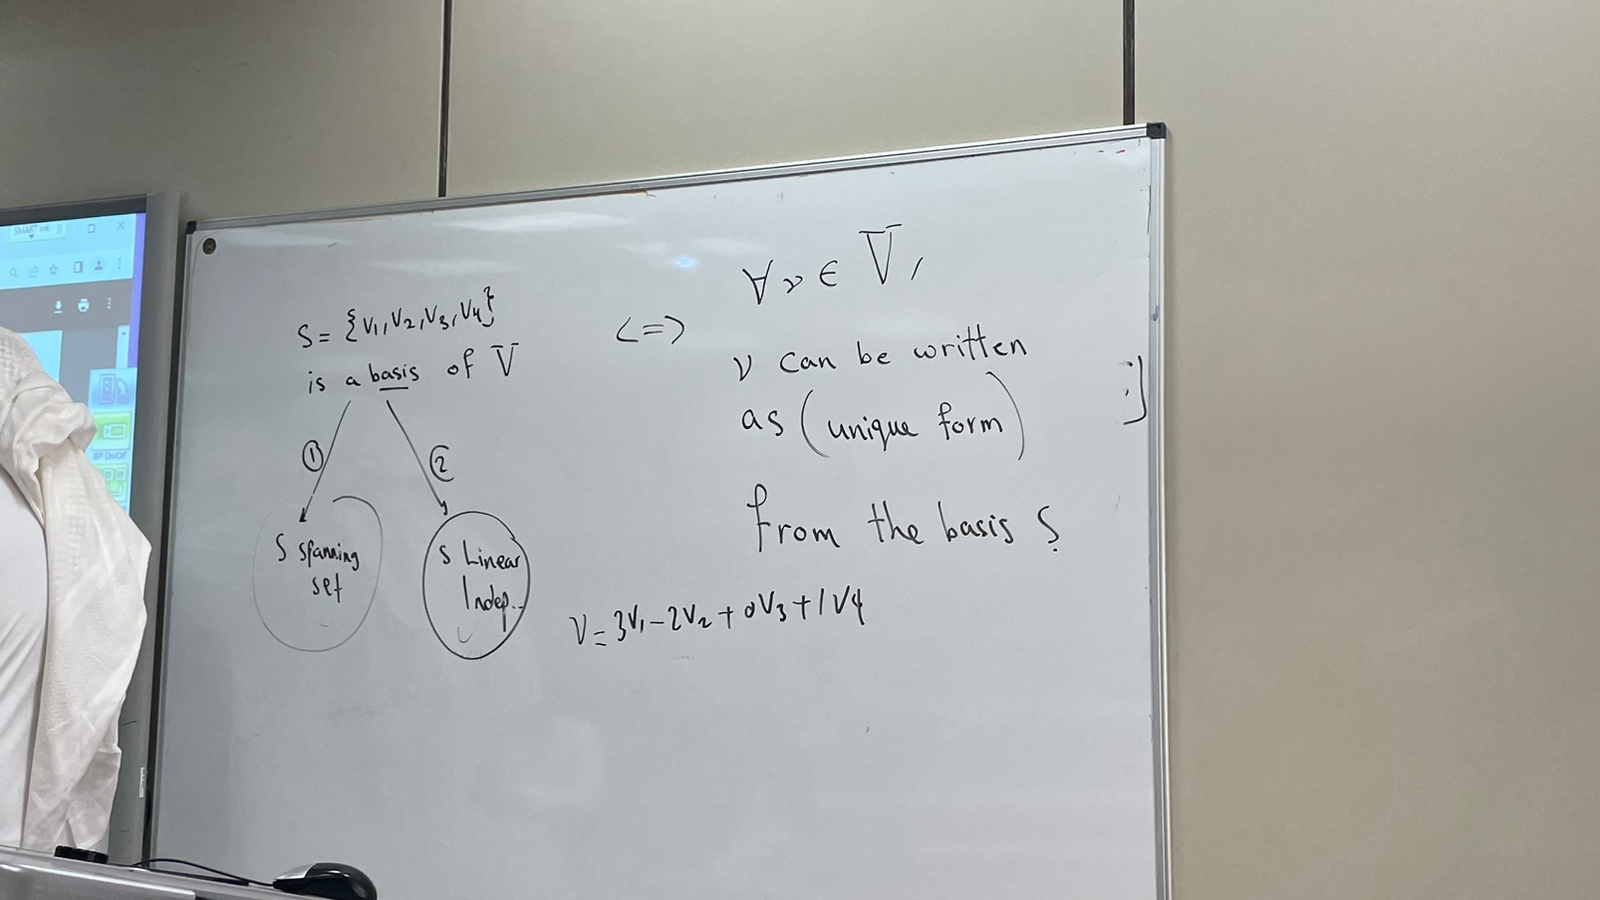 SMART Ink
BP On/Off
S = {v1, v2, v3, v4}
is a basis of V
①
②
S spanning
set
S Linear
Indep..
<=>
∀ v ∈ V,
v can be written
as (unique form)
from the basis S
v = 3v1 - 2v2 + 0v3 + 1v4